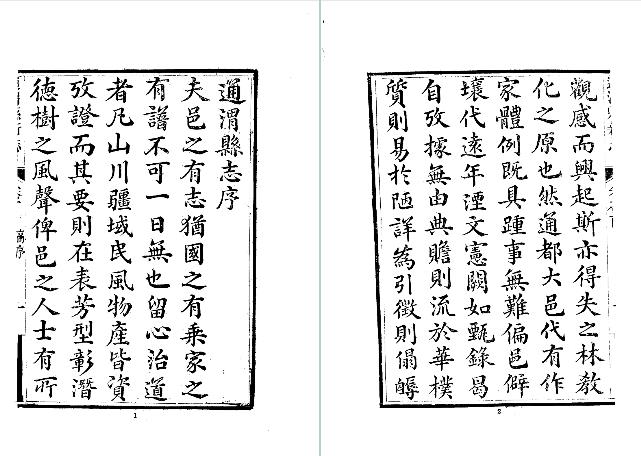 通渭縣志序
夫邑之有志猶國之有乗家之
有譜不可一日無也留心治道
者凡山川疆域民風物產皆資
攷證而其要則在表芳型彰潛
德樹之風聲俾邑之人士有所
1
觀感而興起斯亦得失之林教
化之原也然通都大邑代有作
家體例既具踵事無難偏邑僻
壤代遠年湮文憲闕如甄錄曷
自攷據無由典贍則流於華樸
質則易於陋詳為引徵則傷
2